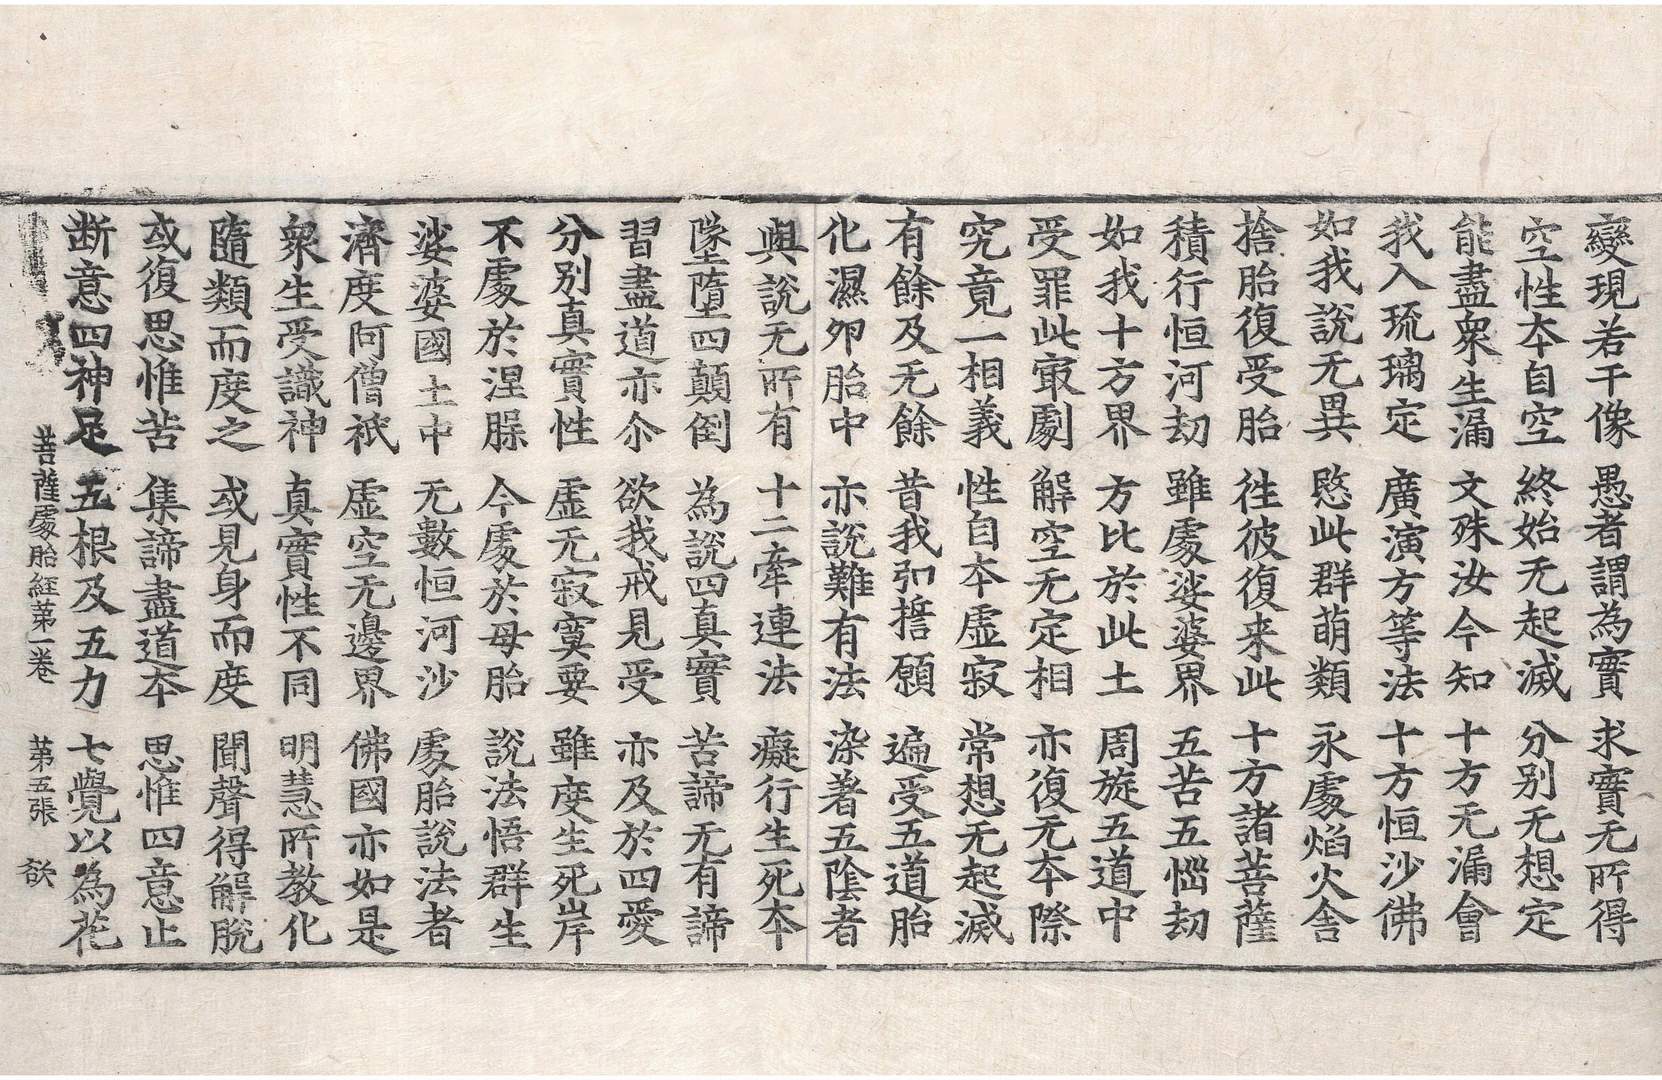 變現若干像 愚者謂為實 求實无所得
空性本自空 終始无起滅 分別无想定
能盡衆生漏 文殊汝今知 十方无漏會
我入琉璃定 廣演方等法 十方恒沙佛
如我說无異 愍此群萌類 永處焰火舍
捨胎復受胎 往彼復来此 十方諸菩薩
積行恒河劫 雖處娑婆界 五苦五惱劫
如我十方界 方比於此土 周旋五道中
受罪此冣劇 解空无定相 亦復无本際
究竟一相義 性自本虛寂 常想无起滅
有餘及无餘 昔我弘誓願 遍受五道胎
化濕卵胎中 亦說難有法 染著五陰者
與說无所有 十二牽連法 癡行生死本
墜墮四顛倒 為說四真實 苦諦无有諦
習盡道亦尒 欲我戒見受 亦及於四愛
分別真實性 虛无寂寞要 雖度生死岸
不處於涅槃 今處於母胎 說法悟群生
娑婆國土中 无數恒河沙 處胎說法者
濟度阿僧祇 虛空无邊界 佛國亦如是
衆生受識神 真實性不同 明慧所教化
隨類而度之 或見身而度 聞聲得解脫
或復思惟苦 集諦盡道本 思惟四意止
断意四神足 五根及五力 七覺以為花
菩薩處胎經第一卷 第五張 欲